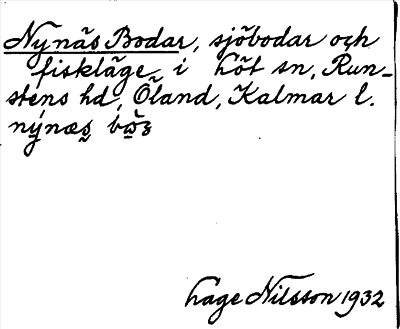 Nynäs Bodar, sjöbodar och
fiskläge i Löt sn, Run-
stens hd, Öland, Kalmar l.
nýnæs bòɷz
Lage Nilsson 1932